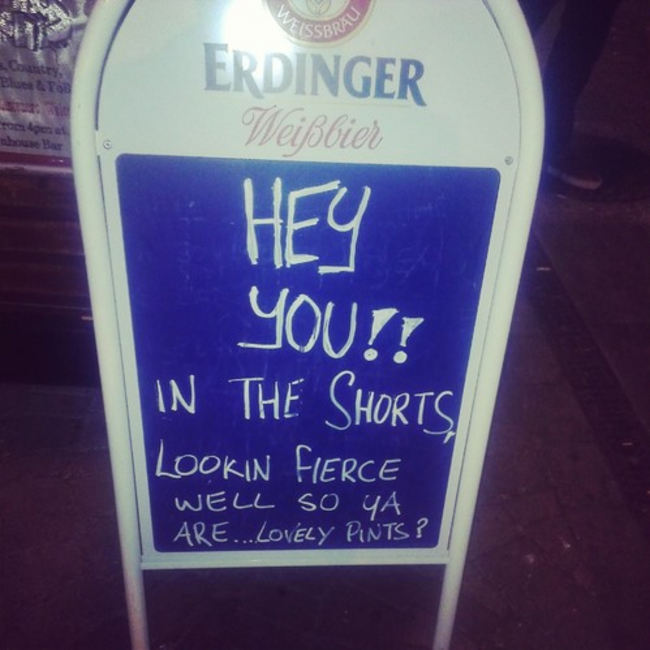 WEISSBRÄU
ERDINGER
Weißbier
HEY
YOU!!
IN THE SHORTS,
LOOKIN FIERCE
WELL SO YA
ARE...LOVELY PINTS?
Country,
Blues & Fol
from 4pm at
house Bar